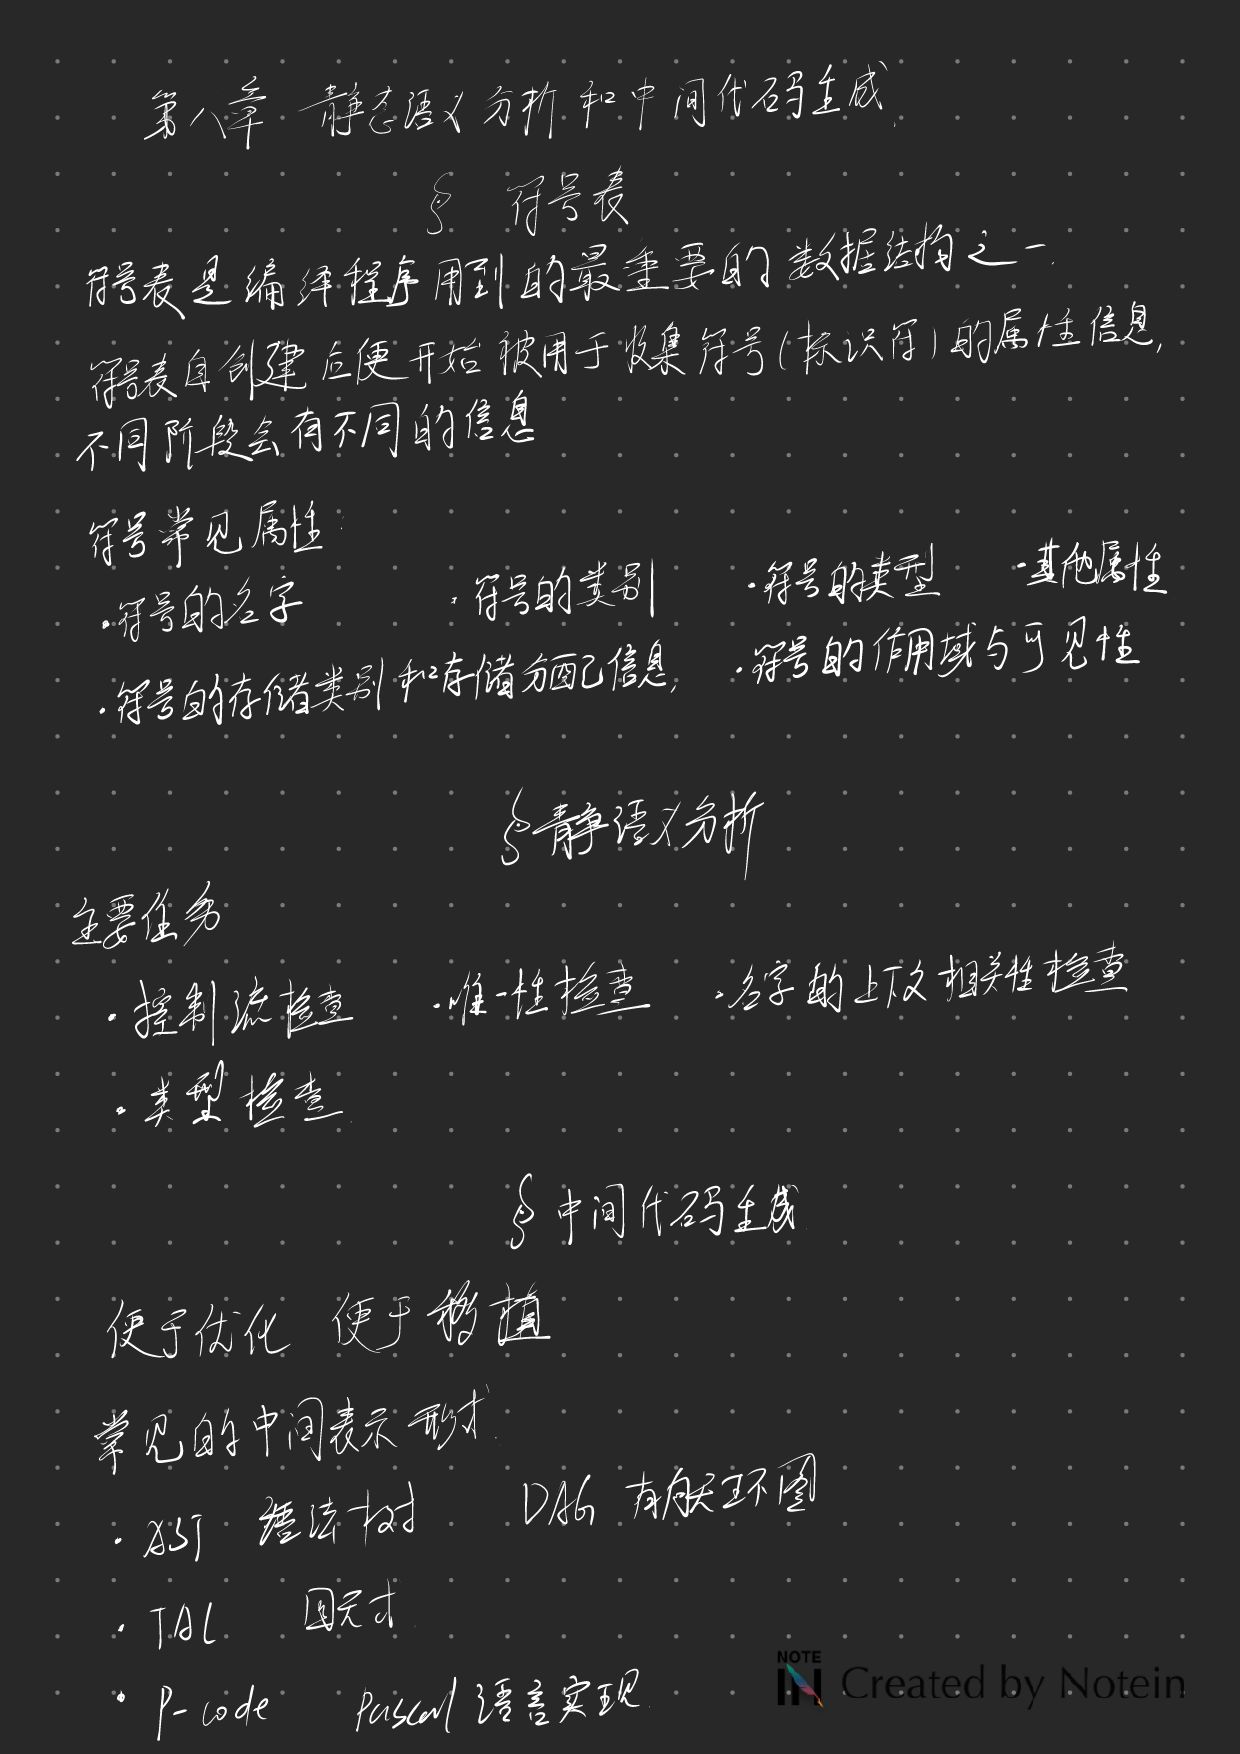 第八章 静态语义分析和中间代码生成
§ 符号表
符号表是编译程序用到的最重要的数据结构之一.
符号表自创建后便开始被用于收集符号(标识符)的属性信息,
不同阶段会有不同的信息
符号常见属性:
·符号的名字 ·符号的类别 ·符号的类型 ·其他属性
·符号的存储类别和存储分配信息, ·符号的作用域与可见性
§静语义分析
主要任务
·控制流检查 ·唯一性检查 ·名字的上下文相关性检查
·类型检查
§中间代码生成
便于优化 便于移植
常见的中间表示形式
·AST 语法树 DAG 有向无环图
·TAC 四元式
·P-code Pascal 语言实现
NOTE IN Created by Notein